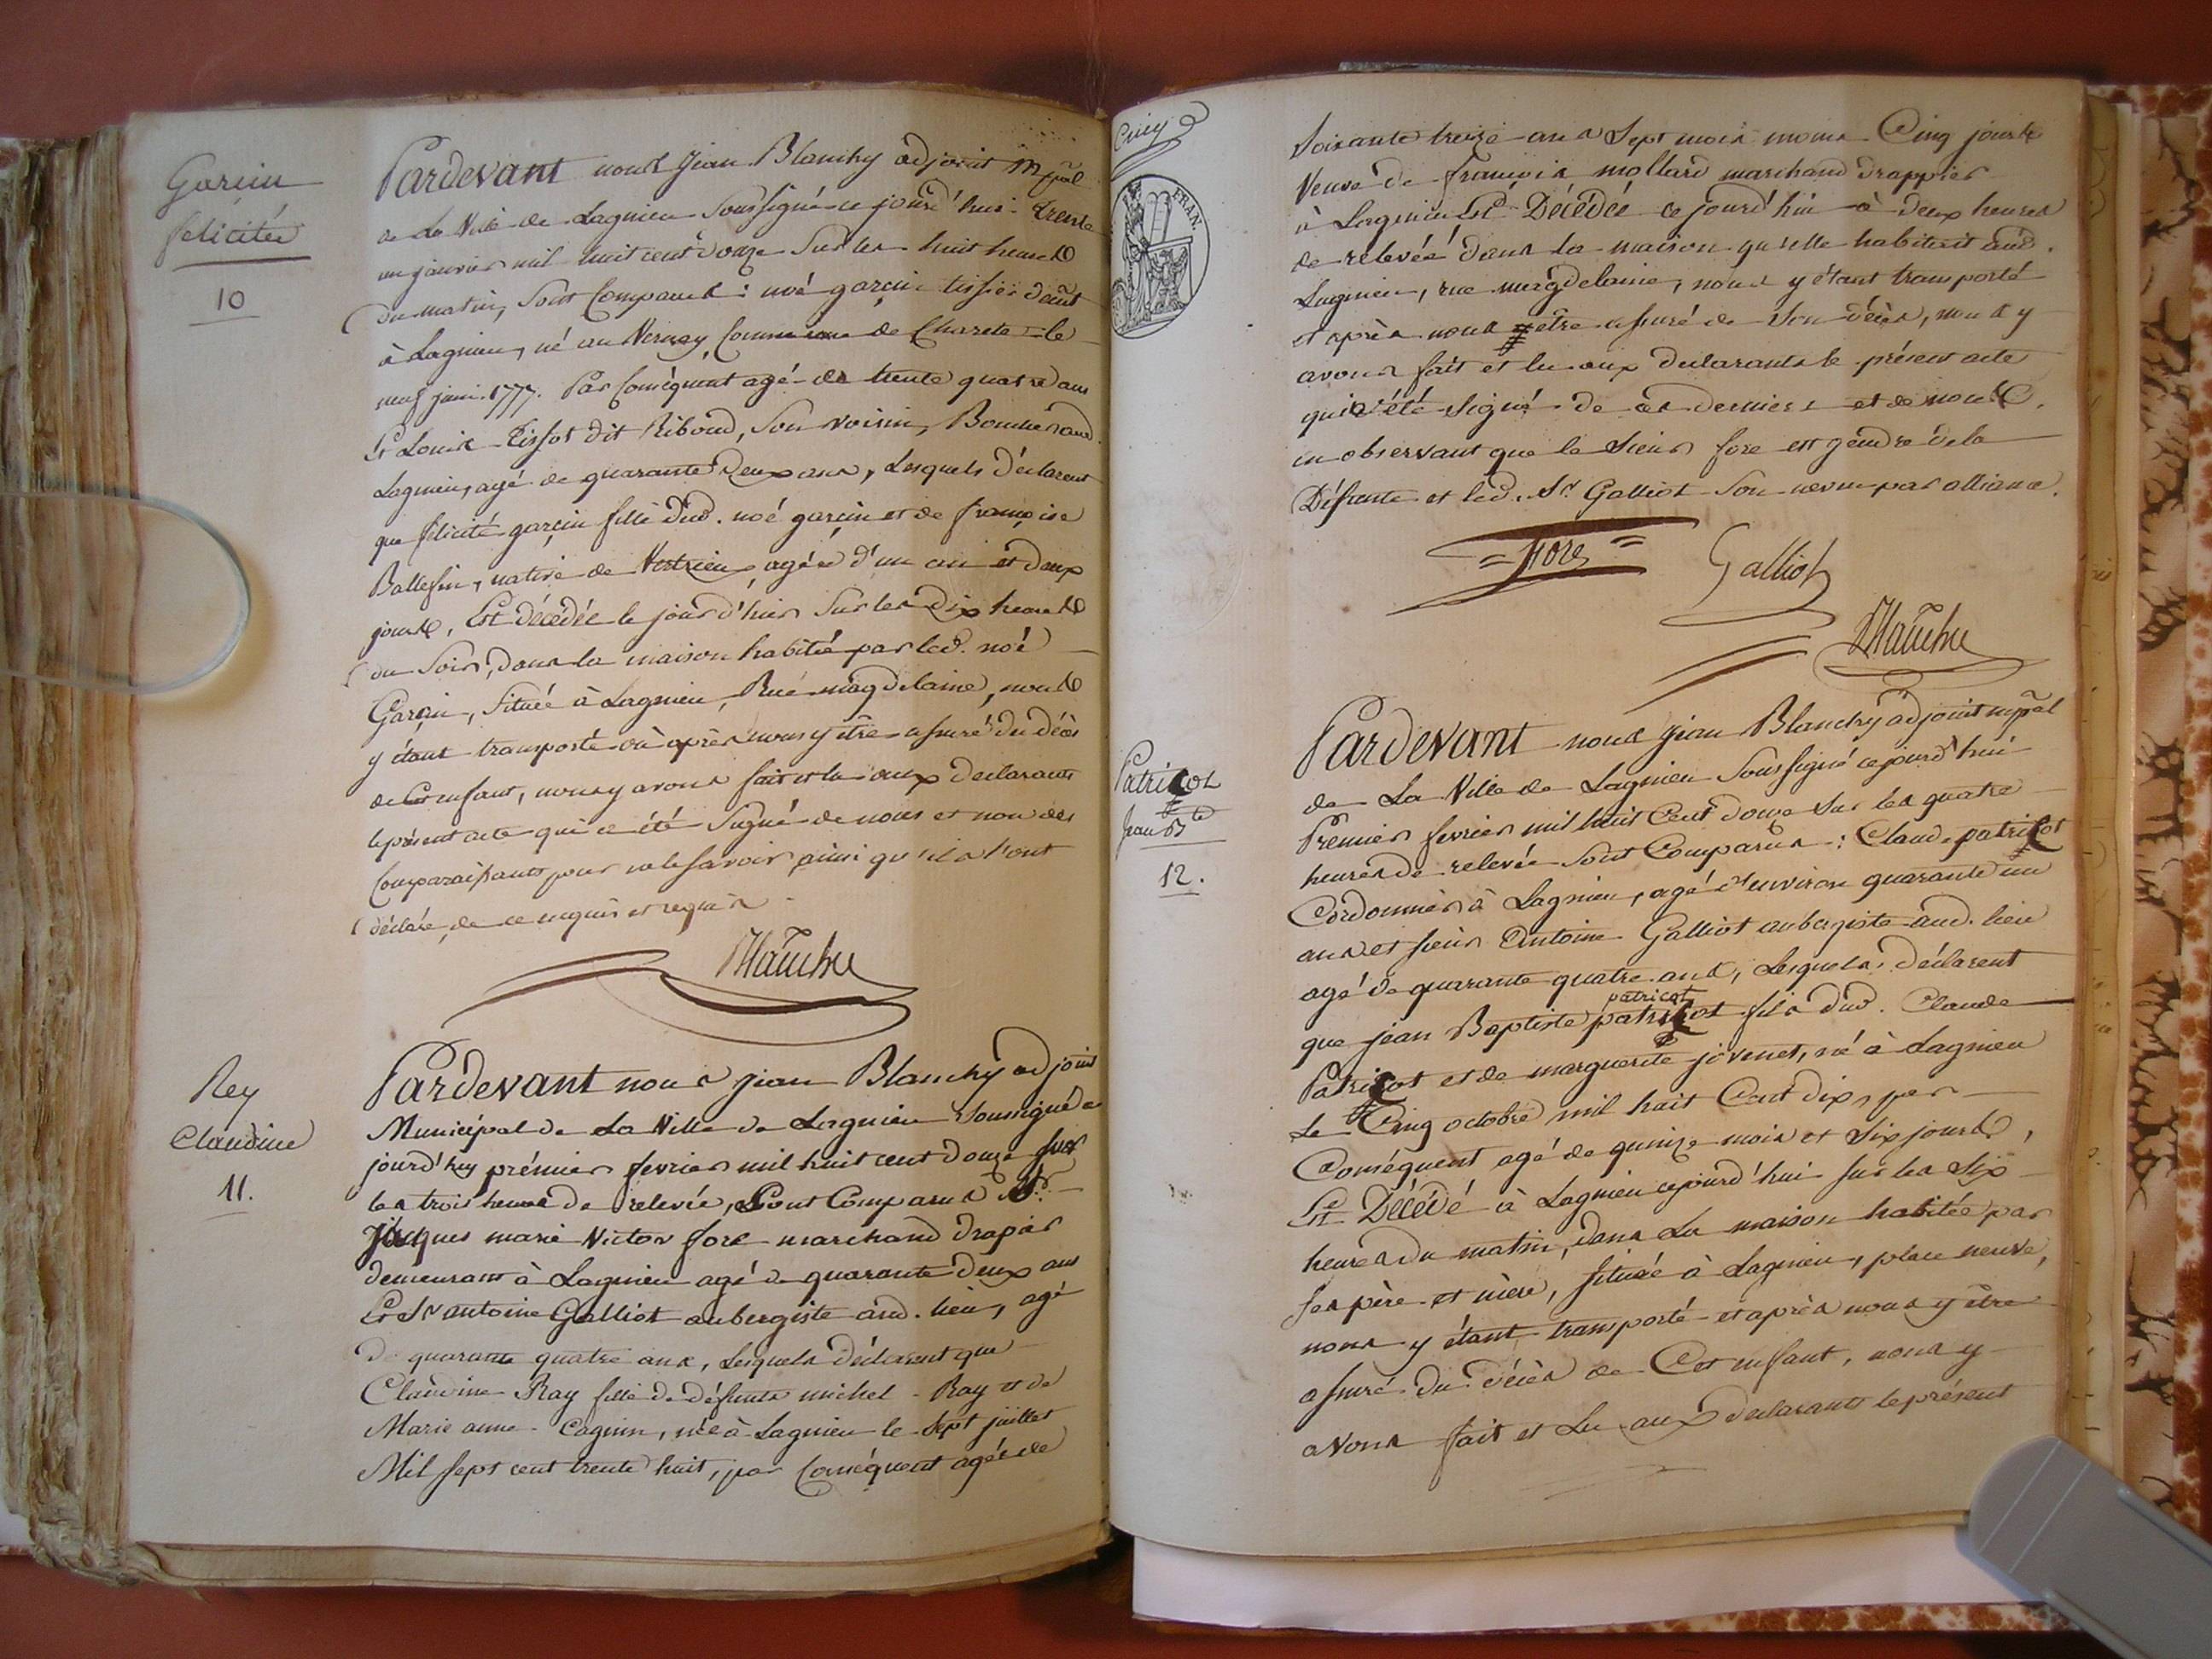 Garçin
felicitée
10
Pardevant nous Jean Blanchy adjoint mpāl
de La Ville de Lagnieu Soussigné ce jourd'hui trente
un janvier mil huit cent douze Sur les huit heures
du matin, Sont Comparus : noé garçin tissier demt
à Lagnieu, né au Vernay Commune de Charete le
neuf juin 1777. Par Conséquent agé de trente quatre ans
Et Louis Tissot dit Riboud, Son voisin, aud.
Lagnieu, agé de quarante Deux ans, Lesquels déclarent
que félicité garçin fille dud. noé garçin et de françoise
Ballefin, native de Vertrieu, agée d'un an et deux
jours, Est décédée le jour d'hier Sur les Dix heures
du Soir, dans la maison habitée par led. noé
Garçin, Située à Lagnieu, Rue magdelaine, nous
y étant transporté où après nous y être assuré du décès
de Cet enfant, nous y avons fait et lu aux declarants
le présent acte qui a été Signé de nous et non des
Comparaissants pour ne le savoir ainsi qu'ils l'ont
déclaré, de ce enquis et requis
Blanchy
Rey
Claudine
11.
Pardevant nous Jean Blanchy adjoint
Municipal de La Ville de Lagnieu Soussigné ce
jourd'huy prémier fevrier mil huit cent douze sur
les trois heures de relevée, Sont Comparus Sr.
Jacques marie Victor fore marchand drapier
demeurant à Lagnieu agé de quarante deux ans
Et Sr antoine Galliot aubergiste aud. lieu, agé
De quarante quatre ans, Lesquels déclarent que
Claudine Ray fille de défunts michel Ray et de
Marie anne Cagnin, née à Lagnieu le Sept juillet
Mil Sept cent trente huit, par Conséquent agée de
FRAN.
Soixante treize ans Sept mois moins Cinq jours
Veuve de françois mollard marchand drappier
à Lagnieu Est Décédée ce jourd'hui à deux heures
de relevée dans la maison qu'elle habitait aud.
Lagnieu, rue magdelaine, nous y étant transporté
et après nous être assuré de Son décès, nous y
avons fait et lu aux declarants le présent acte
qui a été Signé de ces derniers et de nous,
en observant que le Sieur fore est gendre de la
Défunte et led. Sr Galliot Son neveu par alliance.
fore
Galliot
Blanchy
Patricot
Jean Bte
12.
Pardevant nous Jean Blanchy adjoint mpāl
de La Ville de Lagnieu Soussigné ce jourd'hui
Premier fevrier mil huit Cent douze Sur les quatre
heures de relevée Sont Comparus : Claude patricot
Cordonnier à Lagnieu, agé d'environ quarante un
ans et sieur Antoine Galliot aubergiste aud. lieu
agé de quarante quatre ans, Lesquels déclarent
patricot
que jean Baptiste patricot fils dud. Claude
Patricot et de marguerite jovenet, né à Lagnieu
Le Cinq octobre mil huit Cent dix, par
Conséquent agé de quinze mois et Six jours,
Est Décédé à Lagnieu ce jourd'hui sur les Six
heures du matin, dans La maison habitée par
ses père et mère, située à Lagnieu, place neuve,
nous y étant transporté et après nous y être
assuré du décès de Cet enfant, nous y
avons fait et Lu aux declarants le présent